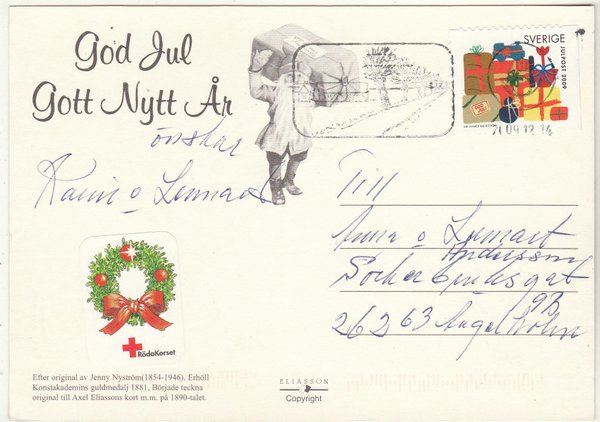 God Jul
Gott Nytt År
önskar
Karin o Lennart
SVERIGE
JULPOST 2009
Till
Anna o Lennart
Andersson
Sockerbruksgat
9B
26263 Ängelholm
RödaKorset
Efter original av Jenny Nyström(1854-1946), Erhöll
Konstakademins guldmedalj 1881, Började teckna
original till Axel Eliassons kort m.m. på 1890-talet.
ELIASSON
Copyright